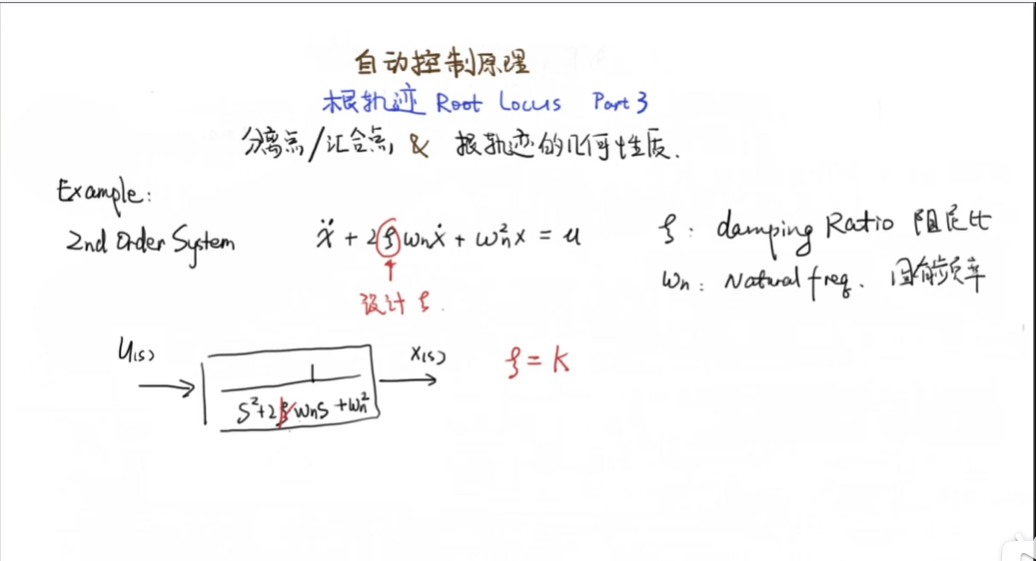 自动控制原理
根轨迹 Root Locus Part 3
分离点/汇合点 & 根轨迹的几何性质.
Example:
2nd Order System ẍ + 2ζωnẋ + ωn²x = u
ζ: damping Ratio 阻尼比
ωn: Natural freq. 固有频率
设计 ζ.
U(s) X(s) ζ = K
1
S²+2ζωnS+ωn²